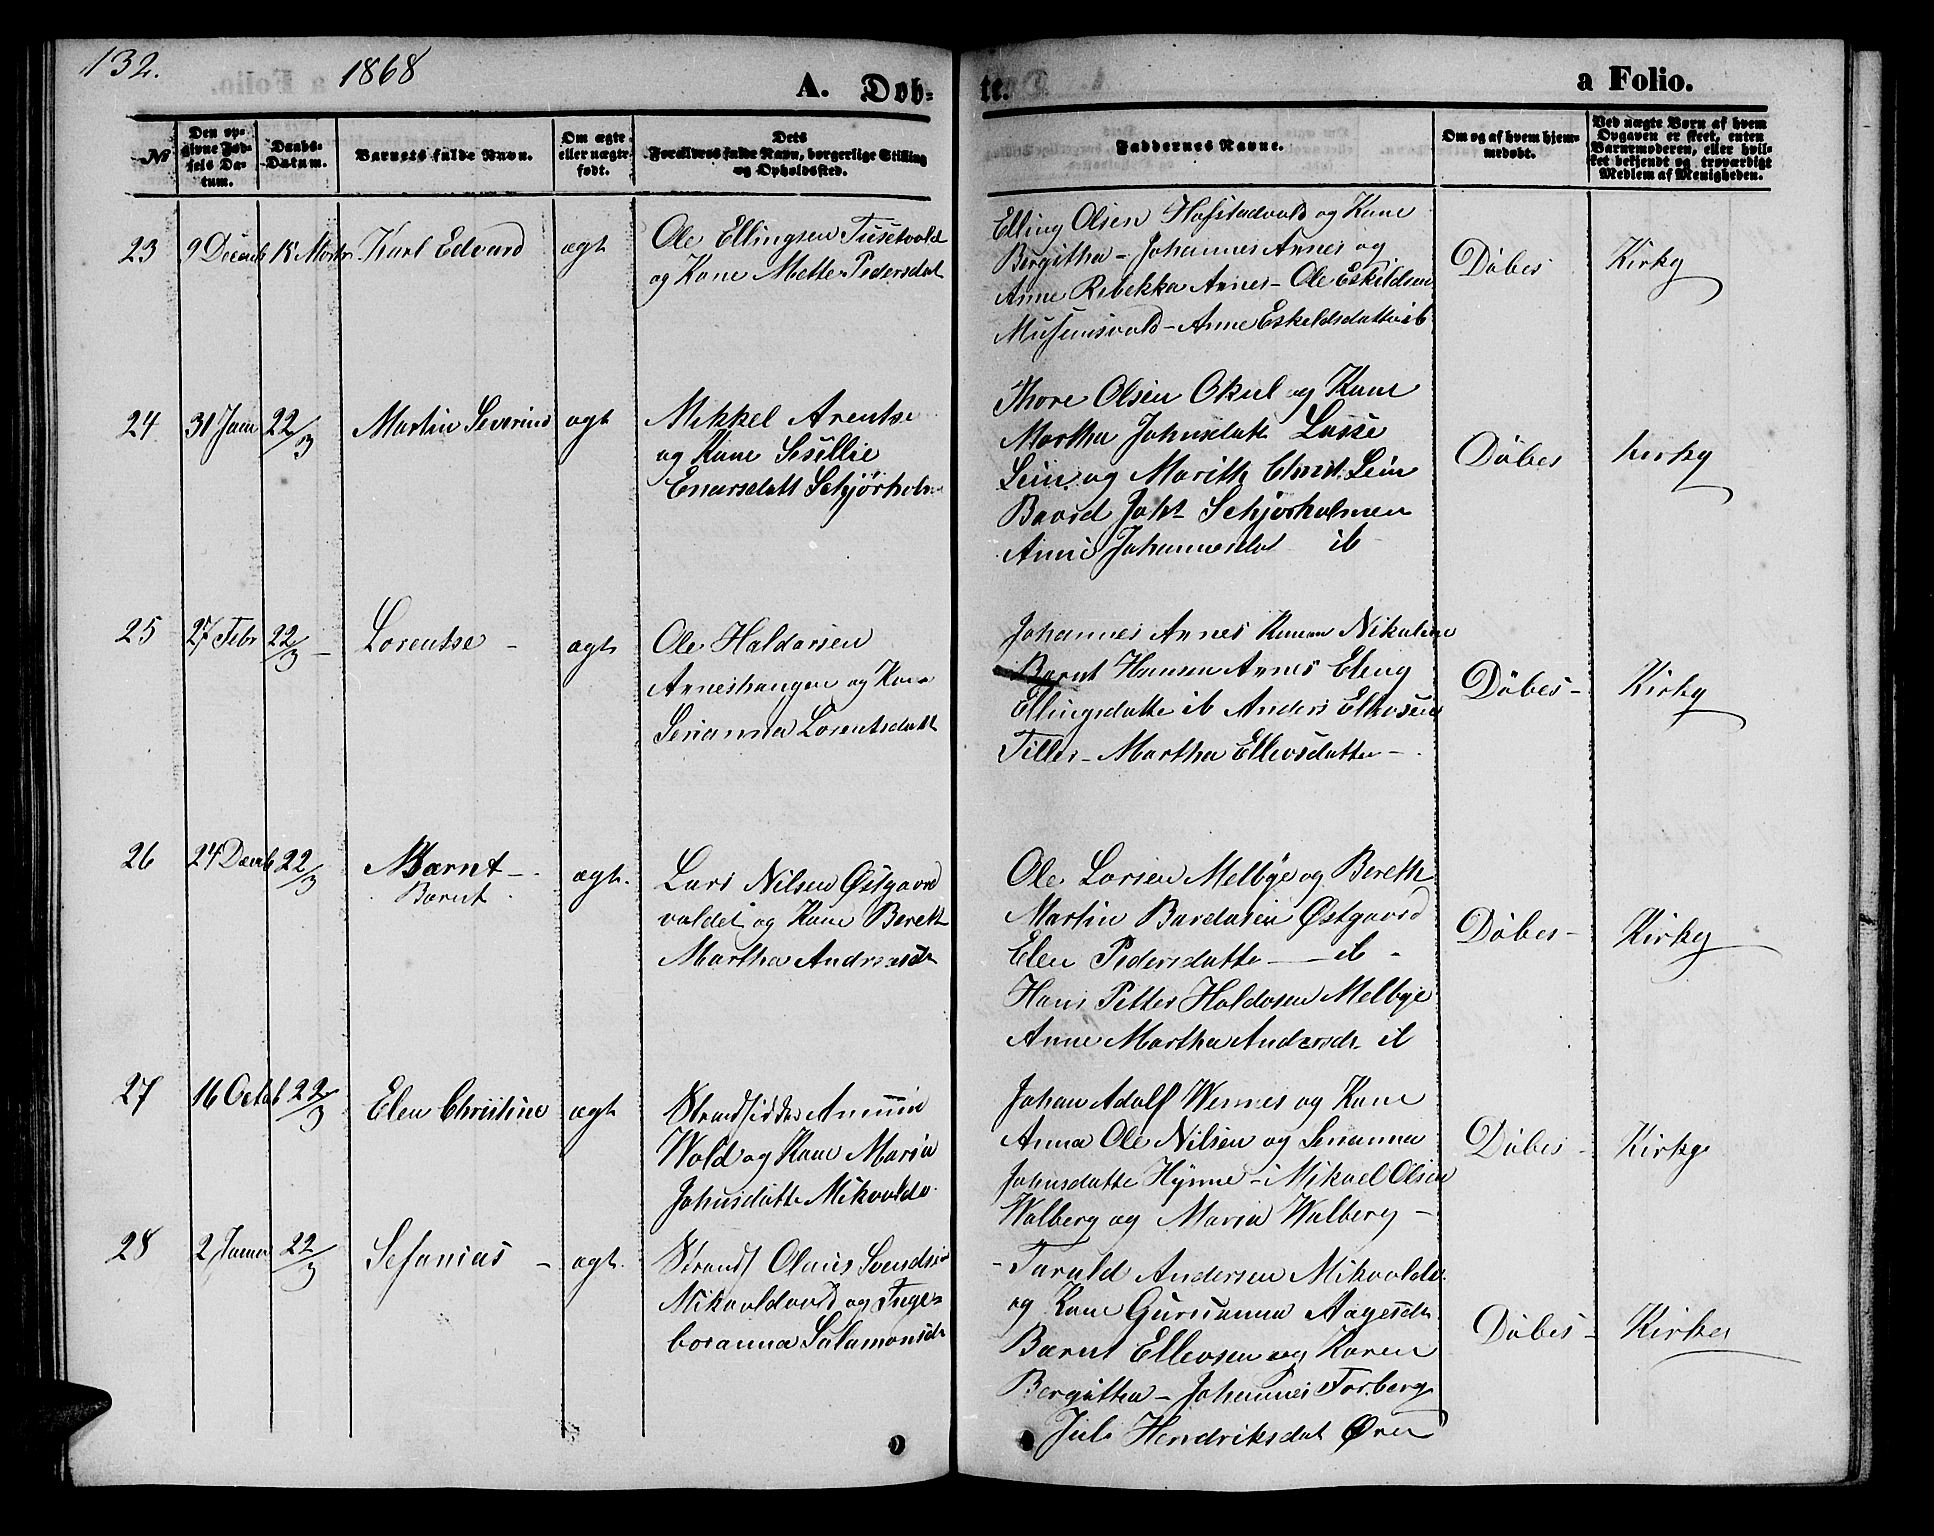 132.
1868
A. Døb-
te.
a Folio.
No
Den op-
givne Fød-
sels Da-
tum.
Daabs-
Datum.
Barnets fulde Navn.
Om ægte
eller uægte
født.
Dets
Forældres fulde Navn, borgerlige Stilling
og Opholdssted.
Faddernes Navne.
Om og af hvem hjem-
medøbt.
Ved uægte Børn af hvem
Opgaven er skeet, enten
Barnemoderen, eller hvil-
ket bekjendt og troværdigt
Medlem af Menigheden.
23
9 Decemb
15 Marts
Karl Edvard
ægt
Ole Ellingsen Tusetvald
og Kone Mette Pedersdat
Elling Olsen Hofstadvald og Kone
Bergitha - Johannes Annes og
Anne Rebekka Annes - Ole Eskildsen
Musumsvald - Anne Eskeldsdatter ib
Døbes
Kirky
24
31 Jan
22/3
Martin Severin
ægt
Mikkel Arentse
og Kone Sesillie
Enarsdatt Schjørholm
Thore Olsen Okul og Kone
Martha Johnsdatt Lasse
Lein og Marith Christ. Lein
Baard Joh Schjørholmen
Anne Johannesdat ib
Døbes
Kirky
25
27 Febr
22/3 -
Lorentse -
ægt
Ole Haldorsen
Anneshaugen og Kone
Serianna Lorentsdatt
Johannes Annes Konen Nikoline
Bernt Hansen Annes Eling
Ellingsdatte ib Anders Ellevsen
Tiller - Martha Ellevsdatter -
Døbes -
Kirky
26
24 Decemb
22/3
Bærnt -
Bærnt
ægt.
Lars Nilsen Østgaard
valdet og Kone Bereth
Martha Andreasdt
Ole Larsen Melbye og Bereth
Martin Bardosen Østgaard
Elen Pedersdatte - ib -
Hans Petter Haldosen Melbye
Anne Martha Andersdr ib
Døbes -
Kirky
27
16 Octob
22/3
Elen Christine
ægt
Strandsidder
Wold og Kone Maria
Johnsdatte Mikvolde
Johan Adolf Wennes og Kone
Anna Ole Nilsen og Serianna
Johnsdatte Hynne - Mikael Olsen
Walberg og Maria Walberg -
Døbes -
Kirkge
28
2 Januar
22/3
Sefanias -
ægt.
Strands Olaus Svendsen
Mikvoldvald og Inge-
boranna Salamonsdr
- Tarald Andersen Mikvolde
og Kone Gurianna Aagesdr
Bærnt Ellevsen og Karen
Bergitha - Johannes Forberg
Juli Hendriksdat Ører
Døbes -
Kirky